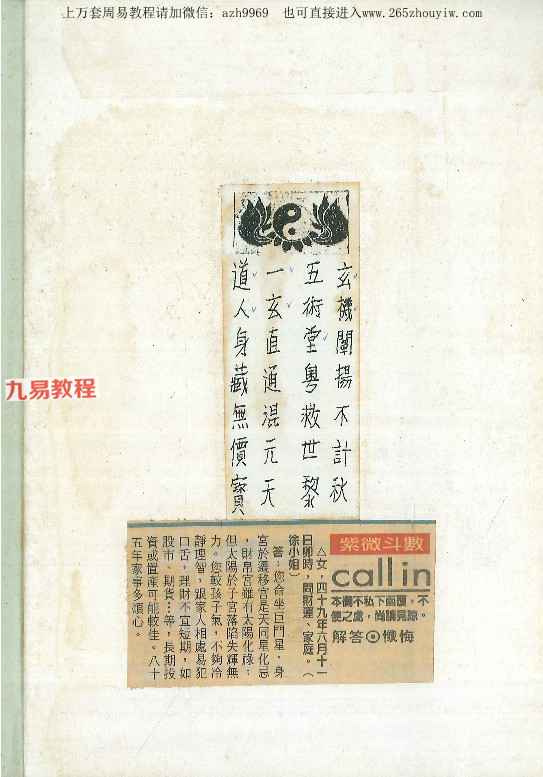 上万套周易教程请加微信：azh9969　也可直接进入www.265zhouyiw.com
玄機闡揚不計秋
五術堂粵救世黎
一玄直通混元天
道人身藏無價寶
九易教程
紫微斗數
call in
本欄不私下函覆，不
便之處，尚請見諒。
解答⊙懺悔
△女，四十九年六月十一
日卯時，問財運、家庭。（
徐小姐）
答：您命坐巨門星，身
宮於遷移宮是天同星化忌
，財帛宮雖有太陽化祿；
但太陽於子宮落陷失輝無
力。您較孩子氣，不夠冷
靜理智，跟家人相處易犯
口舌，理財不宜短期，如
股市、期貨…等，長期投
資或置產可能較佳。八十
五年家事多煩心。